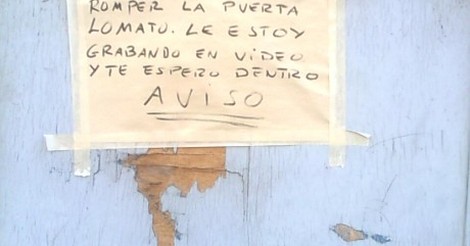 ROMPER LA PUERTA
LO MATO. LE ESTOY
GRABANDO EN VIDEO
Y TE ESPERO DENTRO
AVISO